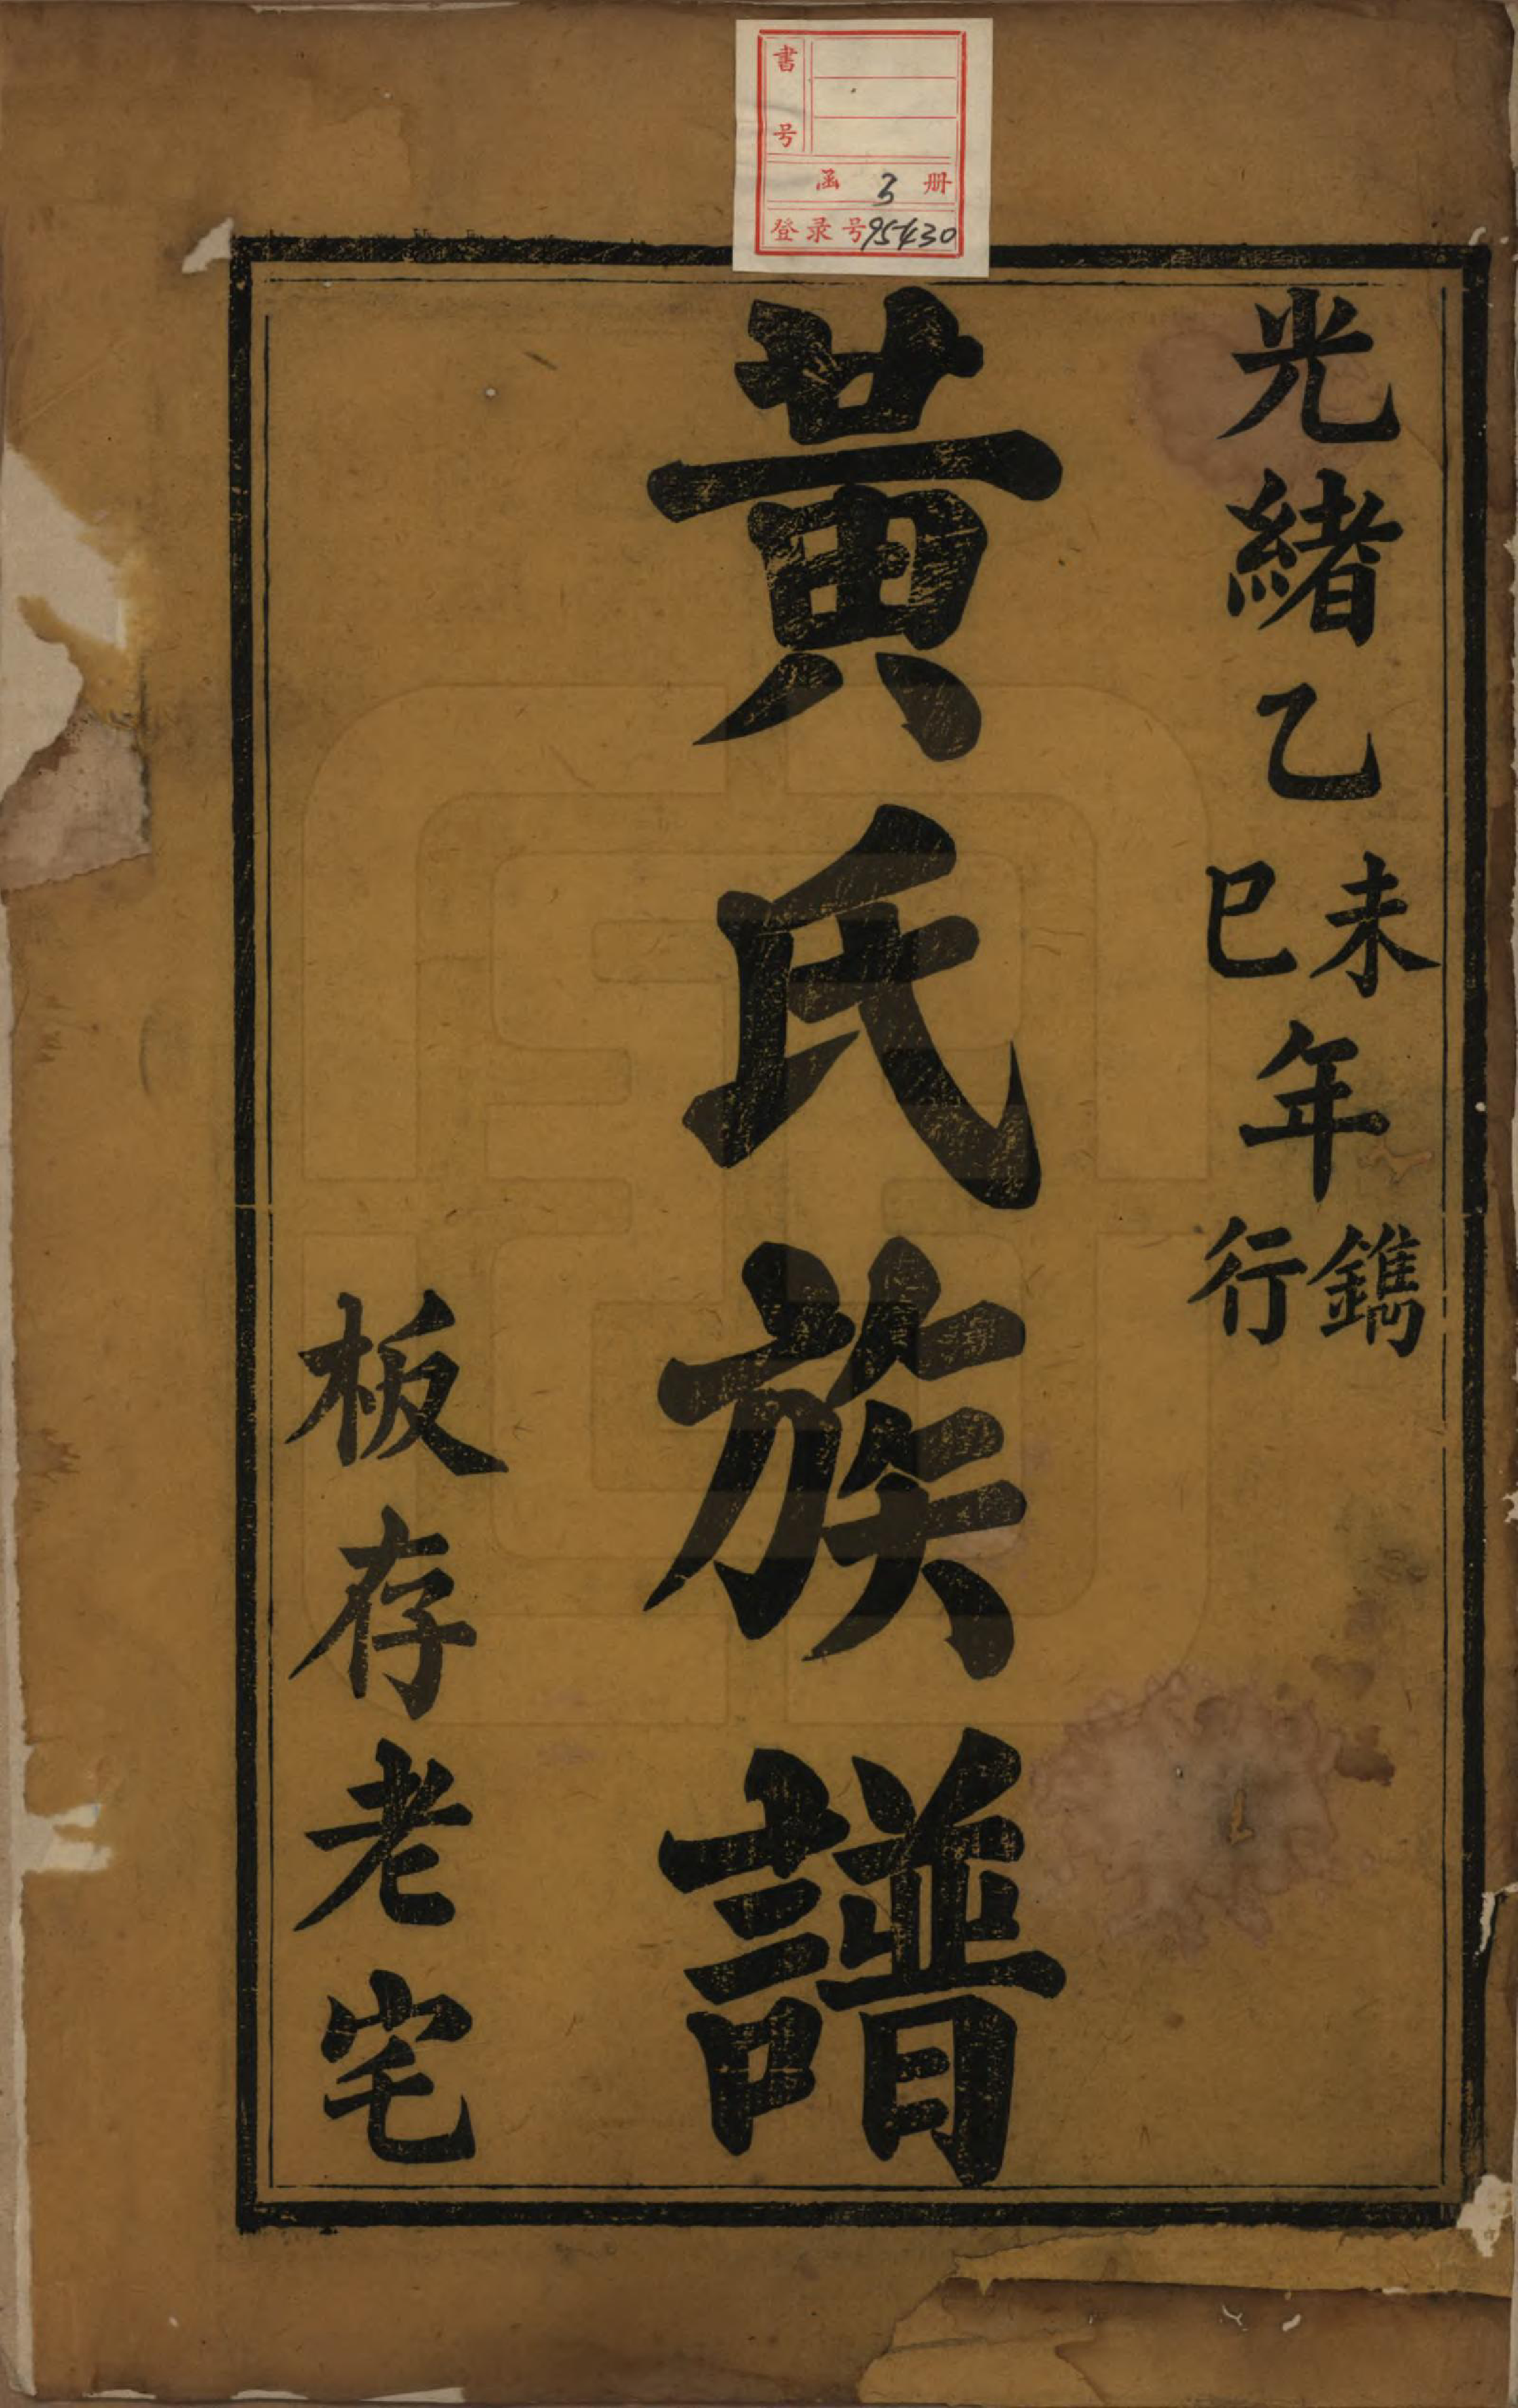 書号
函 3 册
登录号95430
光緒乙未巳年鐫行
黃氏族譜
板存老宅